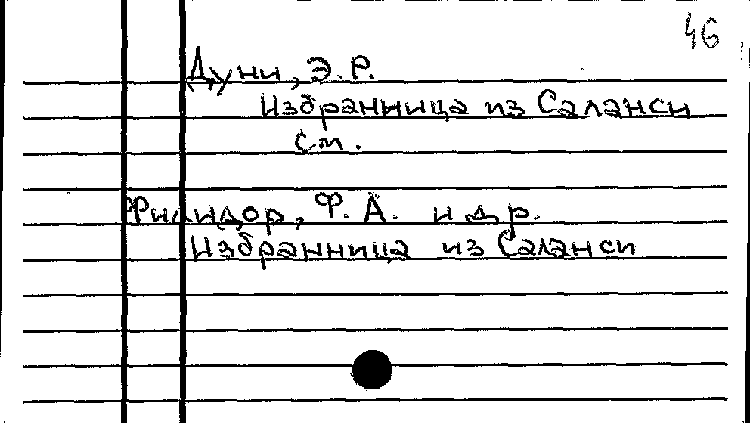 46
Дуни, Э.Р.
Избранница из Саланси
см.
Филидор, Ф.А. и др.
Избранница из Саланси